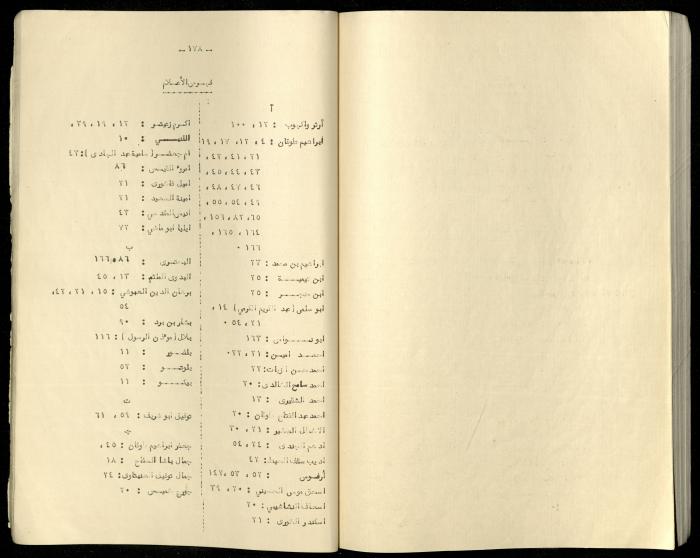 — ١٧٨ —
فهرس الأعلام
أ
أرثر واكهوب : ١٢ ، ١٠٠
ابراهيم طوقان : ٤ ، ١٢ ، ١٧ ، ١٩
٢١ ، ٤١ ، ٤٢ ،
٤٣ ، ٤٤ ، ٤٥ ،
٤٦ ، ٤٧ ، ٤٨ ،
٤٩ ، ٥٤ ، ٥٥ ،
٦٥ ، ٨٢ ، ١٥٦ ،
١٦٤ ، ١٦٥ ،
١٦٦ ٠
ابراهيم بن محمد : ٢٣
ابن تيمية : ٢٥
ابن : ٢٥
ابو سلمى ( عبد الكريم الكرمي ) ١٤ ،
٢١ ، ٥٤ ٠
ابو : ١٦٣
احمد امين : ٢١ ، ٢٢ ٠
احمد حسن الزيات : ٢٢
احمد سامح الخالدي : ٢٠
احمد الشقيري : ١٣
احمد عبد الفتاح طوقان : ٢٠
الاخطل الصغير : ٢١ ، ٣٠
ادهم الجندي : ٢٤ ، ٥٤
: ٤٢
: ٥٢ ، ٥٣ ، ١٤٢
اسحق موسى الحسيني : ٢٠ ، ٣٩
اسعاف النشاشيبي : ٢٠
اسكندر الخوري : ٢١
اكرم زعيتر : ١٢ ، ١٩ ، ٣٩ ،
: ١٠
ام جعفر ( سامية عبد الهادي ) : ٤٢
امرؤ القيس : ٨٦
اميل : ٢١
امينة السعيد : ٢١
: ٤٣
ايليا ابو ماضي : ٢٢
ب
البحتري : ٨٦ ، ١٦٦
البدوي الملثم : ١٣ ، ٤٥
برهان الدين العبوشي : ١٥ ، ٢١ ، ٤٢ ،
٥٤
بشار بن برد : ٩٠
بلال ( مؤذن الرسول ) : ١١٦
بلفور : ١١
: ٥٢
: ١١
ت
توفيق ابو شريف : ٥٩ ، ٦١
ج
جعفر ابراهيم طوقان : ٤٥ ،
جمال باشا السفاح : ١٨
جمال توفيق : ٢٤
: ٢٠